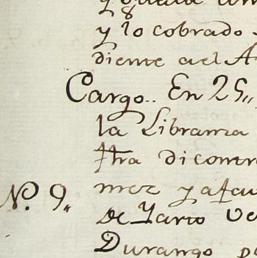 y lo cobrado
diente a el A
Cargo.. En 25„
la Libranza
ftra di contr
mez y a fav
N.º 9„
de Yarto Ve
Durango